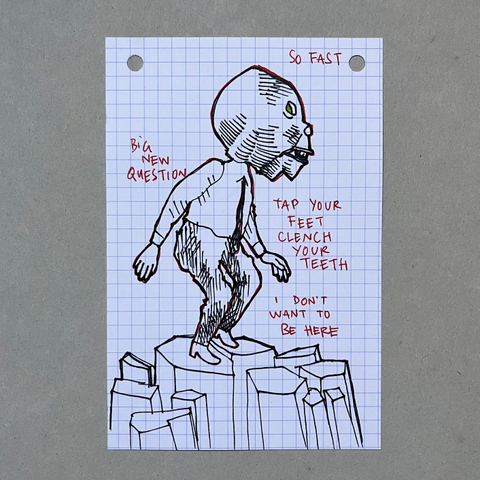 SO FAST
BiG
NEW
QUESTION
TAP YOUR
FEET
CLENCH
YOUR
TEETH
I DON'T
WANT TO
BE HERE